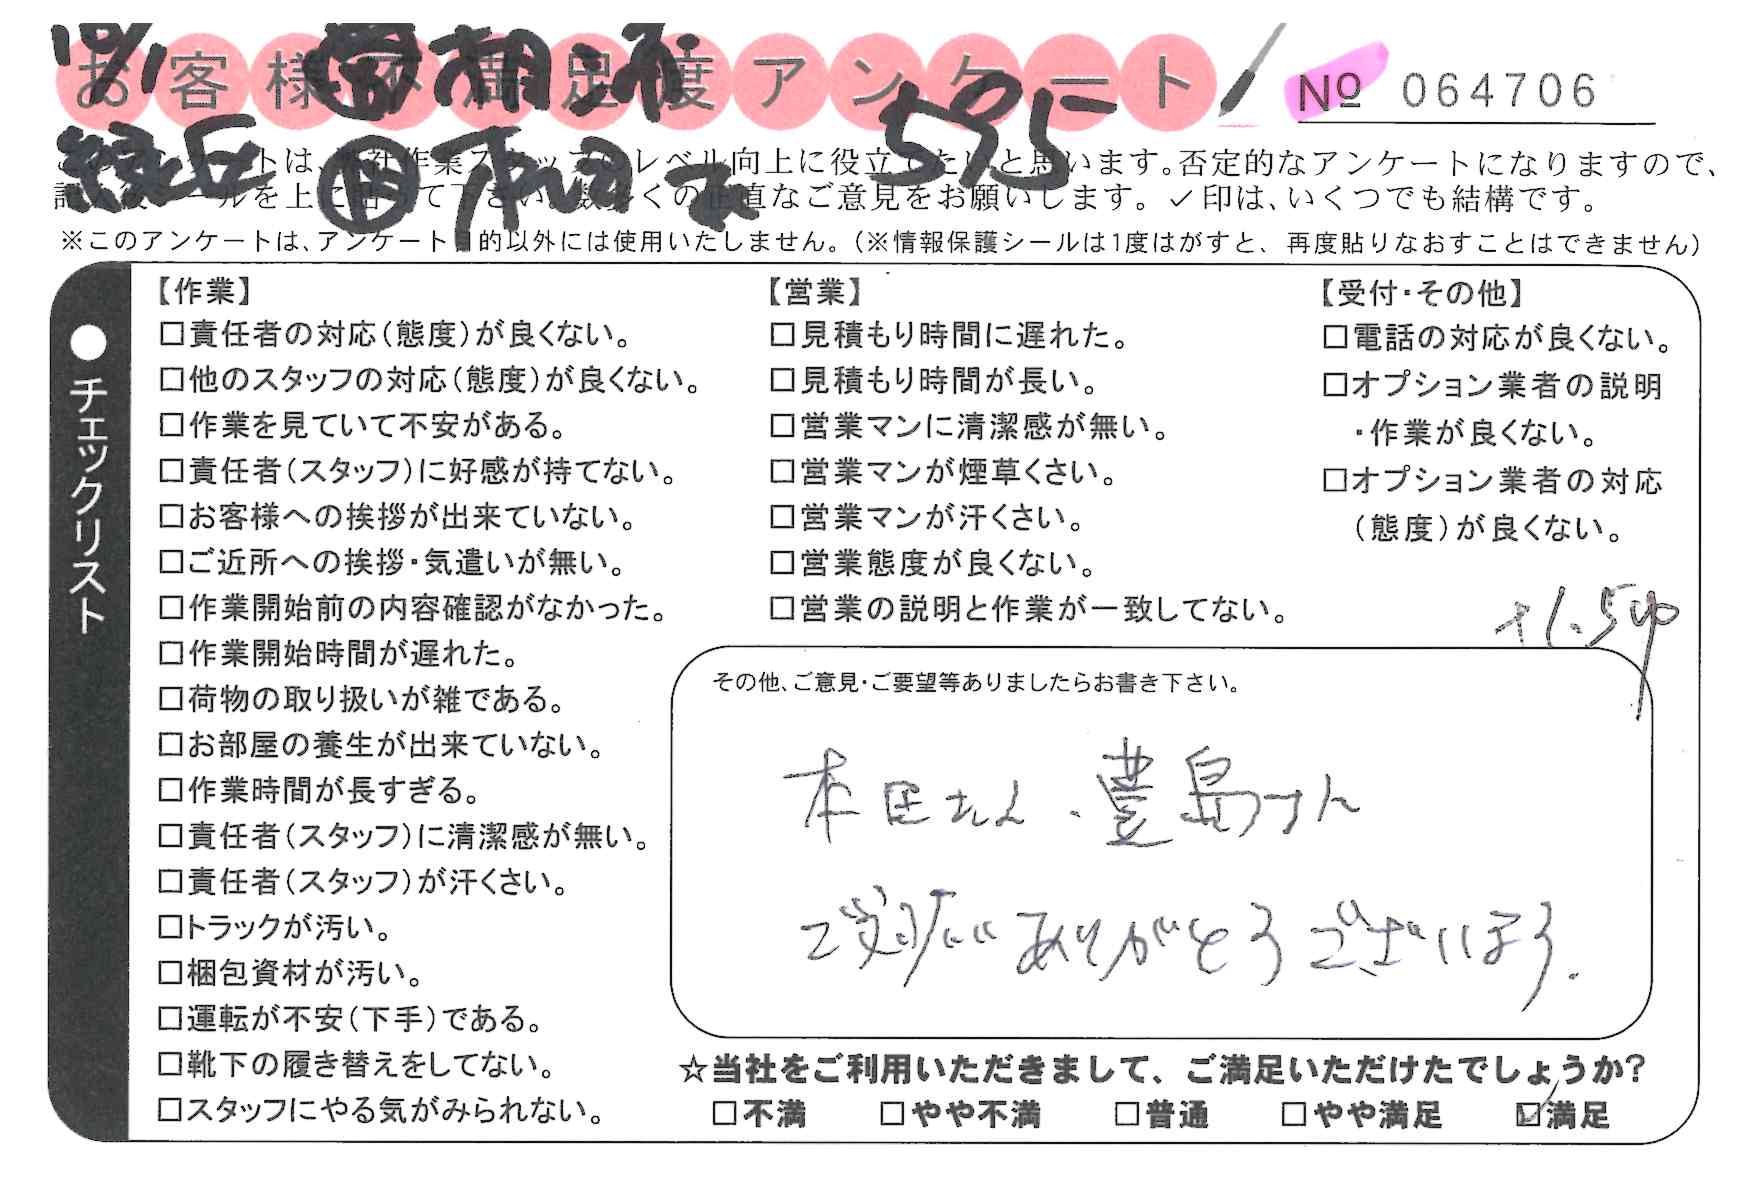 10/1
お客様不満足度アンケート
No 064706
595
このアンケートは、当社作業スタッフのレベル向上に役立てたいと思います。否定的なアンケートになりますので、
記入後シールを上に貼って下さい。数多くの正直なご意見をお願いします。✓印は、いくつでも結構です。
※このアンケートは、アンケート目的以外には使用いたしません。(※情報保護シールは1度はがすと、再度貼りなおすことはできません)
●チェックリスト
【作業】
□責任者の対応(態度)が良くない。
□他のスタッフの対応(態度)が良くない。
□作業を見ていて不安がある。
□責任者(スタッフ)に好感が持てない。
□お客様への挨拶が出来ていない。
□ご近所への挨拶・気遣いが無い。
□作業開始前の内容確認がなかった。
□作業開始時間が遅れた。
□荷物の取り扱いが雑である。
□お部屋の養生が出来ていない。
□作業時間が長すぎる。
□責任者(スタッフ)に清潔感が無い。
□責任者(スタッフ)が汗くさい。
□トラックが汚い。
□梱包資材が汚い。
□運転が不安(下手)である。
□靴下の履き替えをしてない。
□スタッフにやる気がみられない。
【営業】
□見積もり時間に遅れた。
□見積もり時間が長い。
□営業マンに清潔感が無い。
□営業マンが煙草くさい。
□営業マンが汗くさい。
□営業態度が良くない。
□営業の説明と作業が一致してない。
【受付・その他】
□電話の対応が良くない。
□オプション業者の説明
・作業が良くない。
□オプション業者の対応
(態度)が良くない。
+1.5P
その他、ご意見・ご要望等ありましたらお書き下さい。
本田さん、豊島さん
ご対応ありがとうございます。
☆当社をご利用いただきまして、ご満足いただけたでしょうか?
□不満 □やや不満 □普通 □やや満足 ☑満足